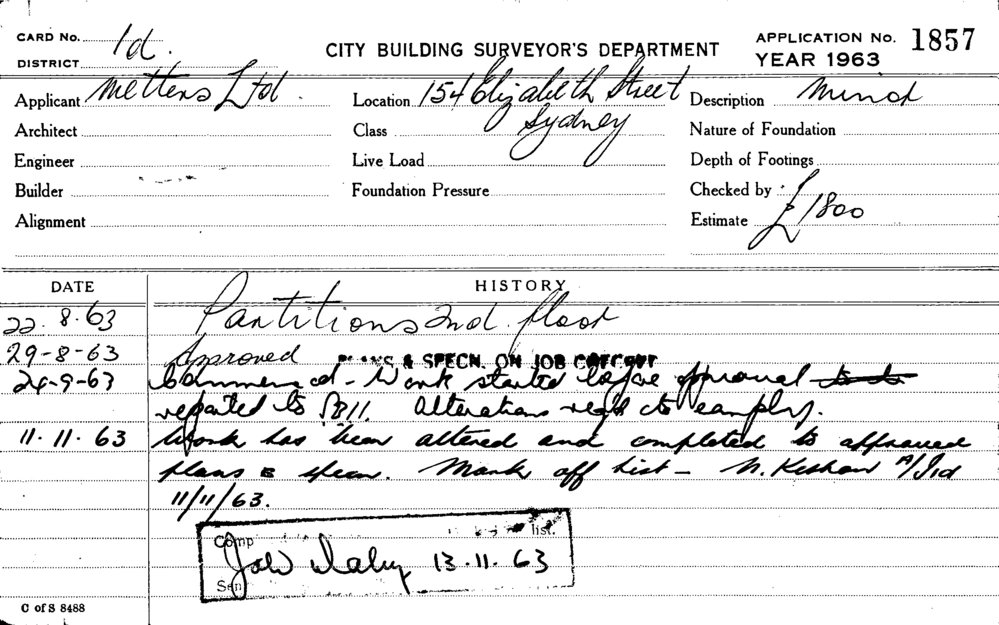 CARD No. 1d.
DISTRICT
CITY BUILDING SURVEYOR'S DEPARTMENT
APPLICATION No. 1857
YEAR 1963
Applicant Mettens Ltd.
Location 154 Elizabeth Street
Sydney
Description Minor
Architect
Class
Nature of Foundation
Engineer
Live Load
Depth of Footings
Builder
Foundation Pressure
Checked by
Alignment
Estimate £1800
DATE
HISTORY
22.8.63 Partitions 2nd. floor
29-8-63 Approved
PLANS & SPECN. ON JOB CORRECT
24-9-63 Commenced - Work started before approval
reported to Alterations
11.11.63 Work has been altered and completed to approved
plans & specn. Mark off list - N. Kershaw A/I1d
11/11/63.
Comp list.
13.11.63
Sen
C of S 8488